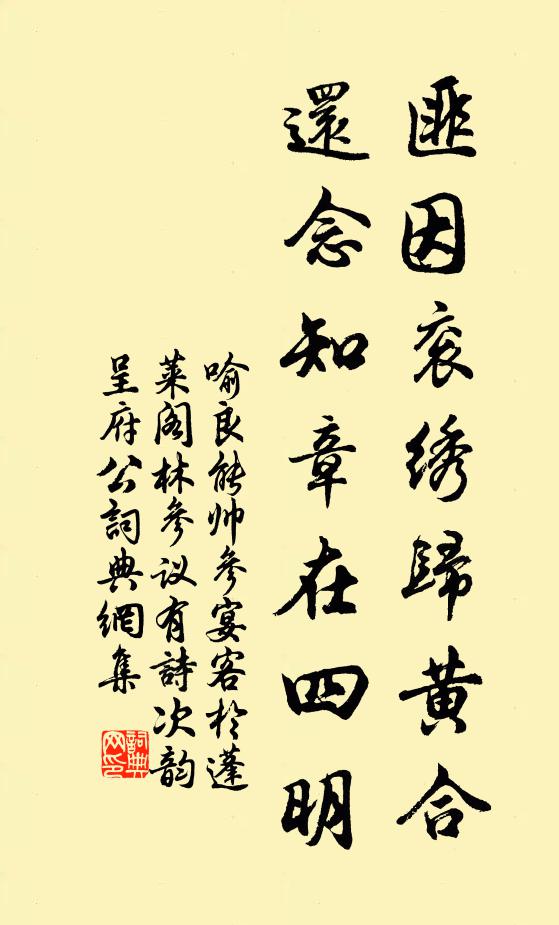 匪因衮绣歸黄合
還念知章在四明
喻良能帅參宴客於蓬
莱阁林參议有詩次韵
呈府公詞典網集
詞典网印